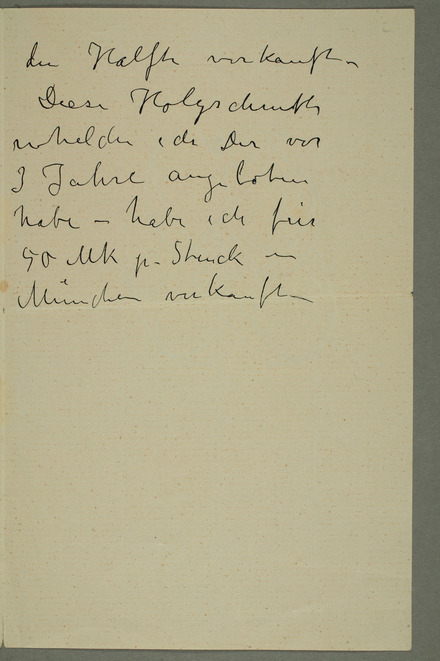 die Hälfte verkauft –
Diese Holzschnitte
welche ich Dir vor
3 Jahre angeboten
habe – habe ich für
50 Mk p. Stuck in
München verkauft –